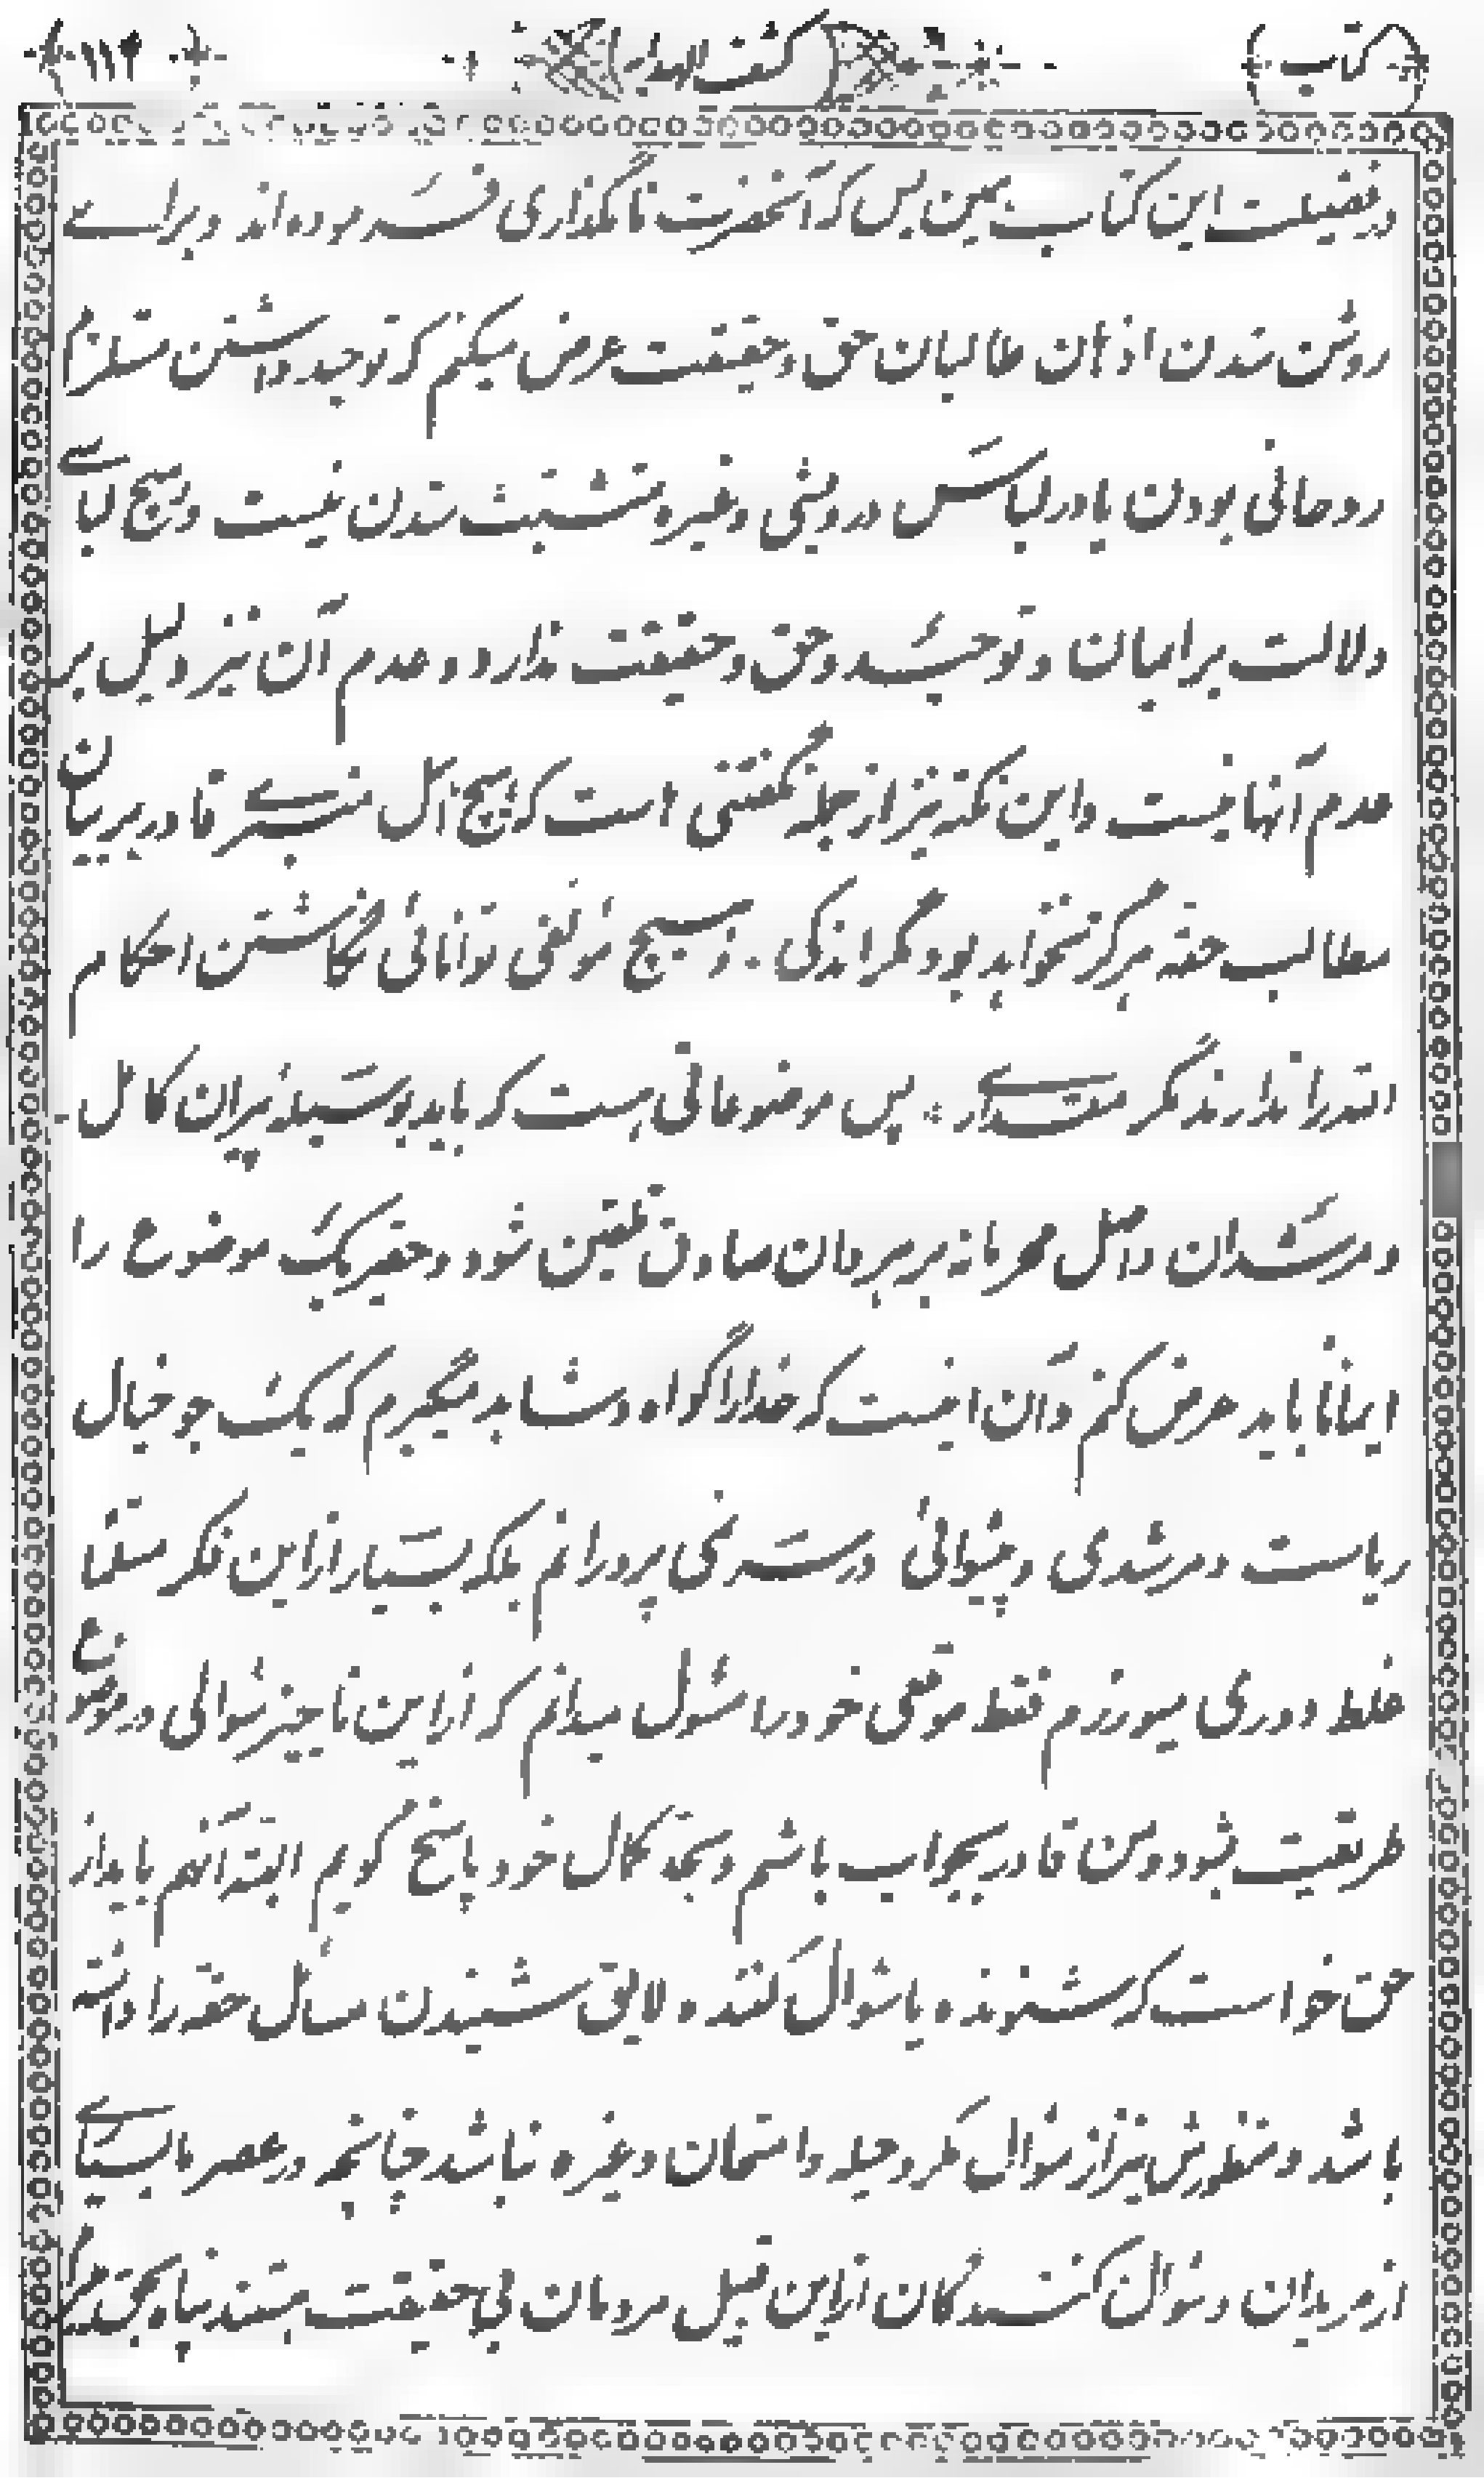 کتاب کشف الهدایه ۱۱۳
در فضیلت این کتاب همین بس که آنحضرت نامگذاری فرموده‌اند و برای
روشن شدن اذهان طالبان حق و حقیقت عرض میکنم که توحید داشتن مستلزم
روحانی بودن یا در لباس درویشی و غیره متشبث شدن نیست و هیچ لباسی
دلالت بر ایمان و توحید و حق و حقیقت ندارد و عدم آن نیز دلیل بر
عدم آنها نیست و این نکته نیز از جمله گفتنی است که هیچ اهل منبری قادر بر بیان
مطالب حقه هرگز نخواهد بود مگر اندکی . و هیچ مؤلفی توانائی نگاشتن احکام
الله را ندارند مگر مقداری . پس موضوعاتی هست که باید بوسیله پیران کامل .
و مرشدان واصل محرمانه بر مریدان صادق تلقین شود و حقیر یک موضوع را
ایماناً باید عرض کنم و آن اینست که خدا را گواه و شاهد میگیرم که یک جو خیال
ریاست و مرشدی و پیشوائی در سر نمی پرورانم بلکه بسیار از این فکر مسلماً
غلط دوری میورزم فقط موقعی خود را مسئول میدانم که از این ناچیز سؤالی در موضوع
طریقت بشود و من قادر بجواب باشم و بحد کمال خود پاسخ گویم البته آنهم باید از
حق خواست که شنونده یا سؤال کننده لایق شنیدن مسائل حقه را داشته
باشد و منظورش نیز از سؤال مکر و حیله و امتحان و غیره نباشد چنانچه در عصر ما بسیاری
از مریدان و سؤال کنندگان از این قبیل مردمان بی حقیقت هستند پناه بحق میبرم